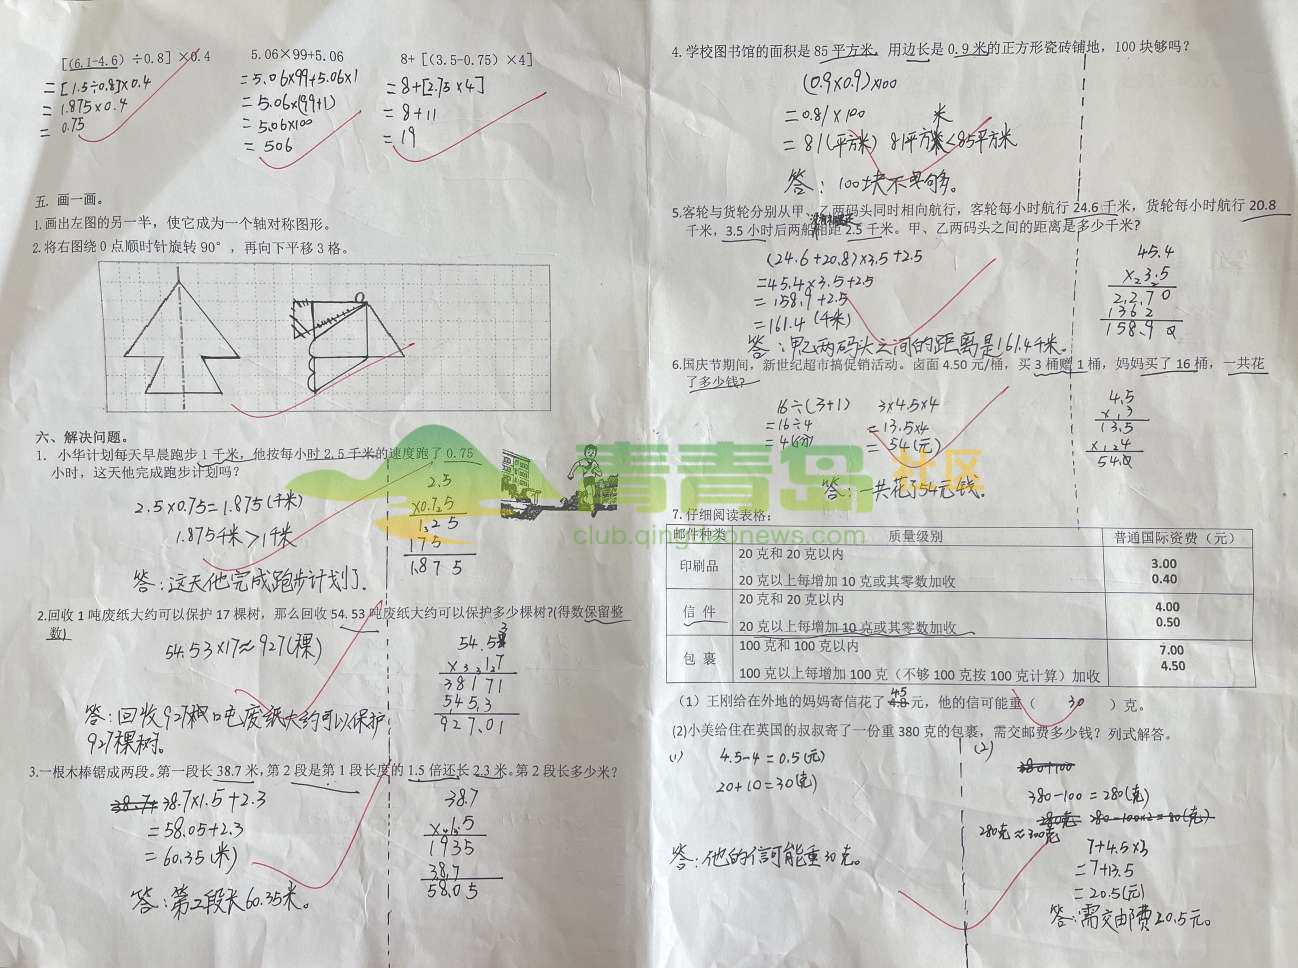 [(6.1-4.6) ÷0.8] ×0.4
=[1.5÷0.8]×0.4
=1.875×0.4
= 0.75
5.06×99+5.06
=5.06×99+5.06×1
= 5.06×(99+1)
= 5.06×100
= 506
8+ [(3.5-0.75) ×4]
=8+[2.75×4]
= 8+11
= 19
五. 画一画。
1.画出左图的另一半，使它成为一个轴对称图形。
2.将右图绕 O 点顺时针旋转 90°，再向下平移 3 格。
O
六、解决问题。
1. 小华计划每天早晨跑步 1 千米，他按每小时 2.5 千米的速度跑了 0.75
小时，这天他完成跑步计划吗？
2.5×0.75=1.875(千米)
1.875千米>1千米
答:这天他完成跑步计划了.
2.5
×0.75
125
175
1.875
2.回收 1 吨废纸大约可以保护 17 棵树，那么回收 54.53 吨废纸大约可以保护多少棵树?(得数保留整
数)
54.53×17≈927(棵)
54.53
×17
38171
5453
927.01
927棵树。
3.一根木棒锯成两段。第一段长 38.7 米,第 2 段是第 1 段长度的 1.5 倍还长 2.3 米。第 2 段长多少米？
38.7×1.5+2.3
=58.05+2.3
=60.35(米)
答:第2段长60.35米。
38.7
×1.5
1935
387
58.05
4.学校图书馆的面积是 85 平方米，用边长是 0.9 米的正方形瓷砖铺地，100 块够吗？
(0.9×0.9)×100
=0.81×100
= 81(平方米) 81平方米<85平方米
答:100块不够。
5.客轮与货轮分别从甲、乙两码头同时相向航行，客轮每小时航行 24.6 千米，货轮每小时航行 20.8
千米，3.5 小时后两船相距 2.5 千米。甲、乙两码头之间的距离是多少千米？
(24.6+20.8)×3.5+2.5
=45.4×3.5+2.5
= 158.9+2.5
=161.4(千米)
答:甲乙两码头之间的距离是161.4千米。
45.4
×3.5
2270
1362
158.90
6.国庆节期间，新世纪超市搞促销活动。卤面 4.50 元/桶，买 3 桶赠 1 桶，妈妈买了 16 桶，一共花
了多少钱?
16÷(3+1)
=16÷4
=4(份)
3×4.5×4
=13.5×4
= 54(元)
答:一共花了54元钱。
4.5
×3
13.5
×4
54.0
青青岛 社区
club.qingdaonews.com
7.仔细阅读表格:
邮件种类 质量级别 普通国际资费（元）
印刷品 20 克和 20 克以内 3.00
20 克以上每增加 10 克或其零数加收 0.40
信 件 20 克和 20 克以内 4.00
20 克以上每增加 10 克或其零数加收 0.50
包 裹 100 克和 100 克以内 7.00
100 克以上每增加 100 克（不够 100 克按 100 克计算）加收 4.50
（1）王刚给在外地的妈妈寄信花了 4.5 元，他的信可能重（ 30 ）克。
(2)小美给住在英国的叔叔寄了一份重 380 克的包裹，需交邮费多少钱？列式解答。
(1) 4.5-4=0.5(元)
20+10=30(克)
答:他的信可能重30克。
(2)
380+100
380-100=280(克)
280克 280-100×2=80(克)
280克≈300克
7+4.5×3
=7+13.5
=20.5(元)
答:需交邮费20.5元。